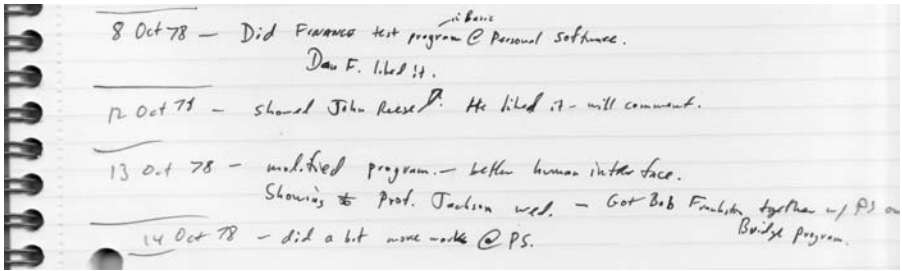 in Basic
8 Oct 78 — Did FINANCE test program @ Personal Software.
Dan F. liked it.
12 Oct 78 - showed John Reese. He liked it - will comment.
13 Oct 78 - modified program. - better human interface.
Showing to Prof. Jackson wed. - Got Bob Frankston together w/ PS on
Bridge program.
14 Oct 78 - did a bit more work @ PS.